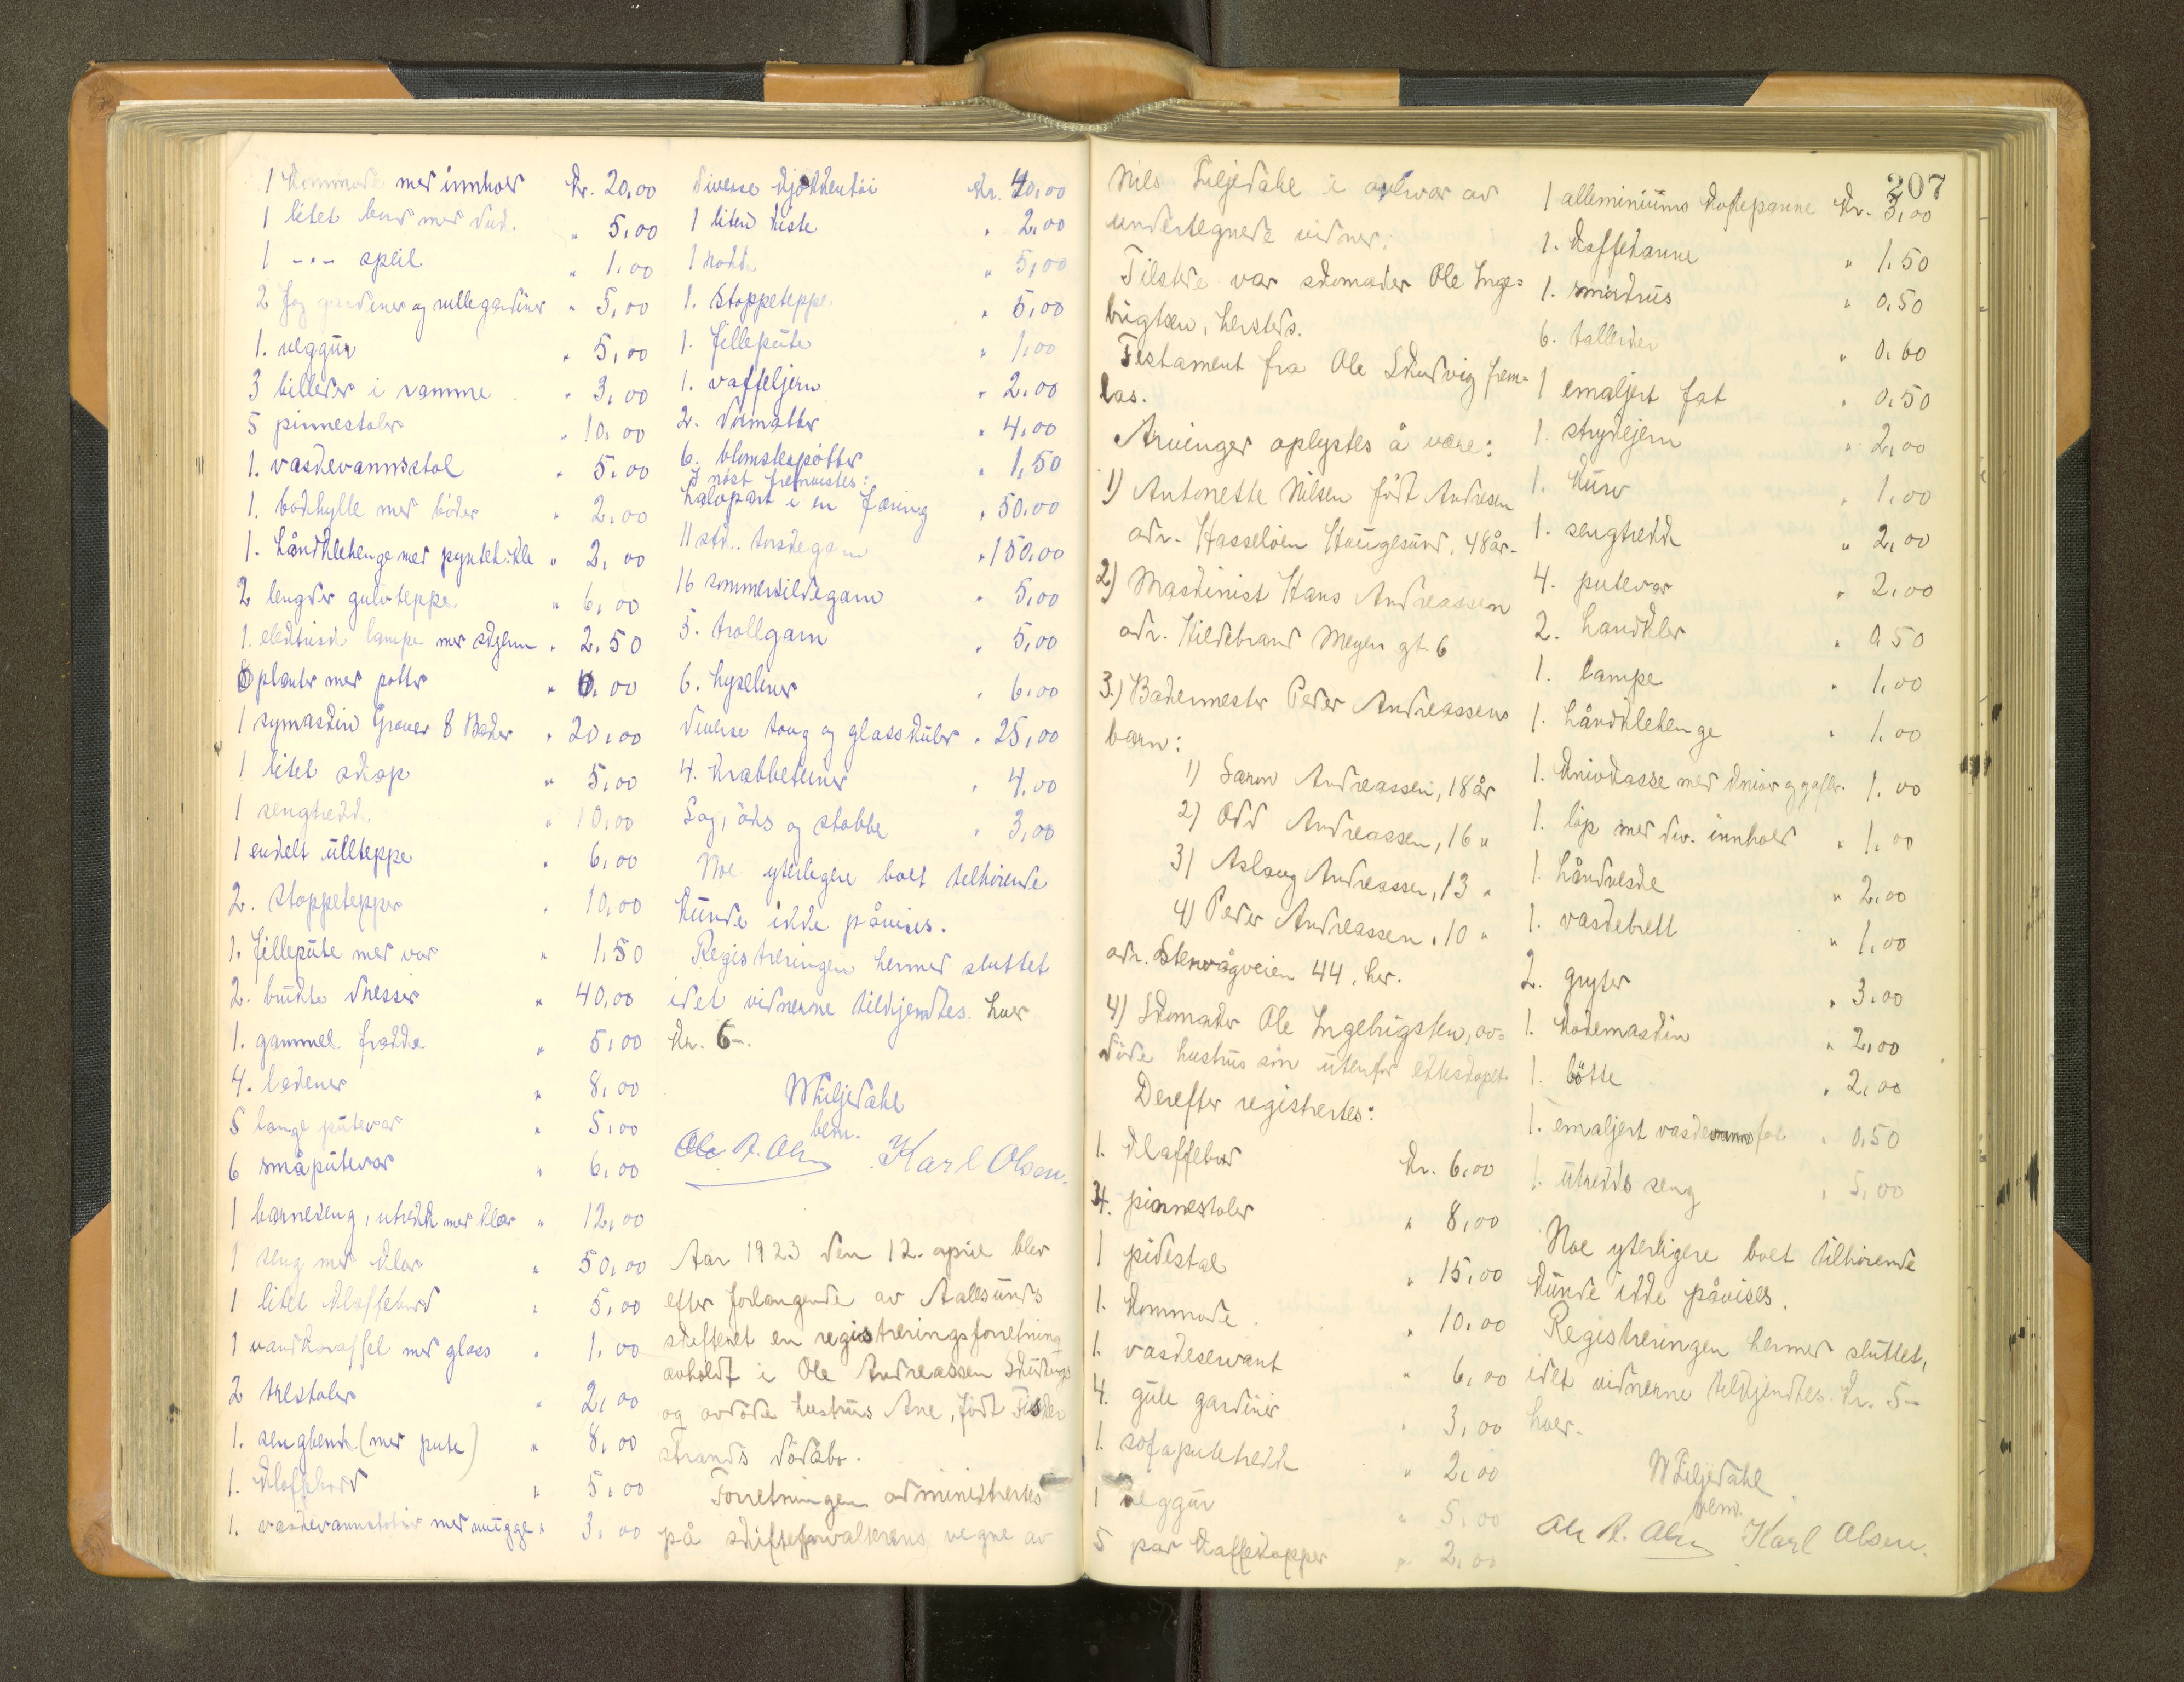 1 Kommode med innhold Kr. 20,00
1 litet bord med dud. " 5,00
1 -"- speil " 1,00
2 fag gardiner og rullegardiner " 5,00
1. veggur " 5,00
3 billeder i ramme " 3,00
5 pinnestoler " 10,00
1. vaskevannsstol " 5,00
1. bokhylle med bøker " 2,00
1. håndklehenge med pyntehkle " 2,00
2 lengder gulvteppe " 6,00
1. elektrisk lampe med skjerm " 2,50
8 planter med potter " 6,00
1 symaskin Grover & Baker " 20,00
1 litet skap " 5,00
1 sengtrekk " 10,00
1 enkelt ullteppe " 6,00
2. stoppetepper " 10,00
1. fillepute med var " 1,50
2. brukte dresser " 40,00
1. gammel frakke " 5,00
4. lakener " 8,00
5 lange putevar " 5,00
6 småputevar " 6,00
1 barneseng, utrekk med klær " 12,00
1 seng med klær " 50,00
1 litet klaffebord " 5,00
1 vandkaraffel med glass " 1,00
2 trestoler " 2,00
1. sengbenk (med pute) " 8,00
1. klaffbord " 5,00
1. vaskevannstobir med mugge " 3,00
diverse kjøkkentøi Kr. 40,00
1 liten kiste " 2,00
1 kokk. " 5,00
1. stoppeteppe " 5,00
1. fillepute " 1,00
1. vaffeljern " 2,00
2. dørmatter " 4,00
6. blomsterpotter " 1,50
I nøst fremvistes:
halvpart i en færing " 50,00
11 stk. torskegarn " 150,00
16 sommersildegarn " 5,00
5. trollgarn " 5,00
6. hyseliner " 6,00
diverse taug og glasskuler " 25,00
4. krabbeteiner " 4,00
Sag, øks og stabbe " 3,00
Noe yterligere boet tilhørende
kunde ikke påvises.
Registreringen hermed sluttet
idet vidnerne tilkjendtes hver
Kr. 6-.
N Liljedahl
bem.
Ole R. Olsen Karl Olsen.
Aar 1923 den 12. april blev
efter forlangende av Aalesunds
skifteret en registreringsforretning
avholdt i Ole Andreassen Skudvigs
og avdøde hustrus Ane, født Fisker
strands dødsbo.
Forretningen administrertes
på skifteforvalterens vegne av
207
Nils Liljedahl i overvær av
undertegnede vidner.
Tilstede var skomaker Ole Inge=
brigtsen, hersteds.
Testament fra Ole Skudvig frem=
las.
Arvinger oplystes å være:
1) Antonette Nilsen født Andresen
adr. Hasseløen Haugesund, 48 år.
2) Maskinist Hans Andreassen
adr. Hildebrand Meyers gt. 6
3.) Bademester Peder Andreassens
barn:
1) Saron Andreassen, 18 år
2) Odd Andreassen, 16 "
3) Aslaug Andreassen, 13 "
4) Peder Andreassen, 10 "
adr. Stenvågveien 44, her.
4) Skomaker Ole Ingebrigtsen, av=
døde hustrus søn utenfor ekteskapet.
Derefter registrertes:
1. klaffebord Kr. 6,00
4. pinnestoler " 8,00
1 pidestal " 15,00
1. kommode " 10,00
1. vaskeservant " 6,00
4. gule gardiner " 3,00
1. sofaputetrekk " 2,00
1 veggur " 5,00
5 par kaffekopper " 2,00
1 alleminiums kaffepanne Kr. 3,00
1. kaffekanne " 1,50
1. småkrus " 0,50
6. tallerker " 0,60
1 emaljert fat " 0,50
1. strykejern " 2,00
1. kurv " 1,00
1. sengtrekk " 2,00
4. putevar " 2,00
2. handklær " 0,50
1. lampe " 1,00
1. håndklehenge " 1,00
1. knivkasse med kniver og gafler " 1,00
1. løp med div. innhold " 1,00
1. håndveske " 2,00
1. vaskebrett " 1,00
2. gryter " 3,00
1. kokemaskin " 2,00
1. bøtte " 2,00
1. emaljert vaskevannsfat " 0,50
1. utrekks seng " 5,00
Noe yterligere boet tilhørende
kunde ikke påvises.
Registreringen hermed sluttet,
idet vidnerne tilkjendtes Kr. 5-
hver.
N Liljedahl
bem.
Ole R. Olsen Karl Olsen.